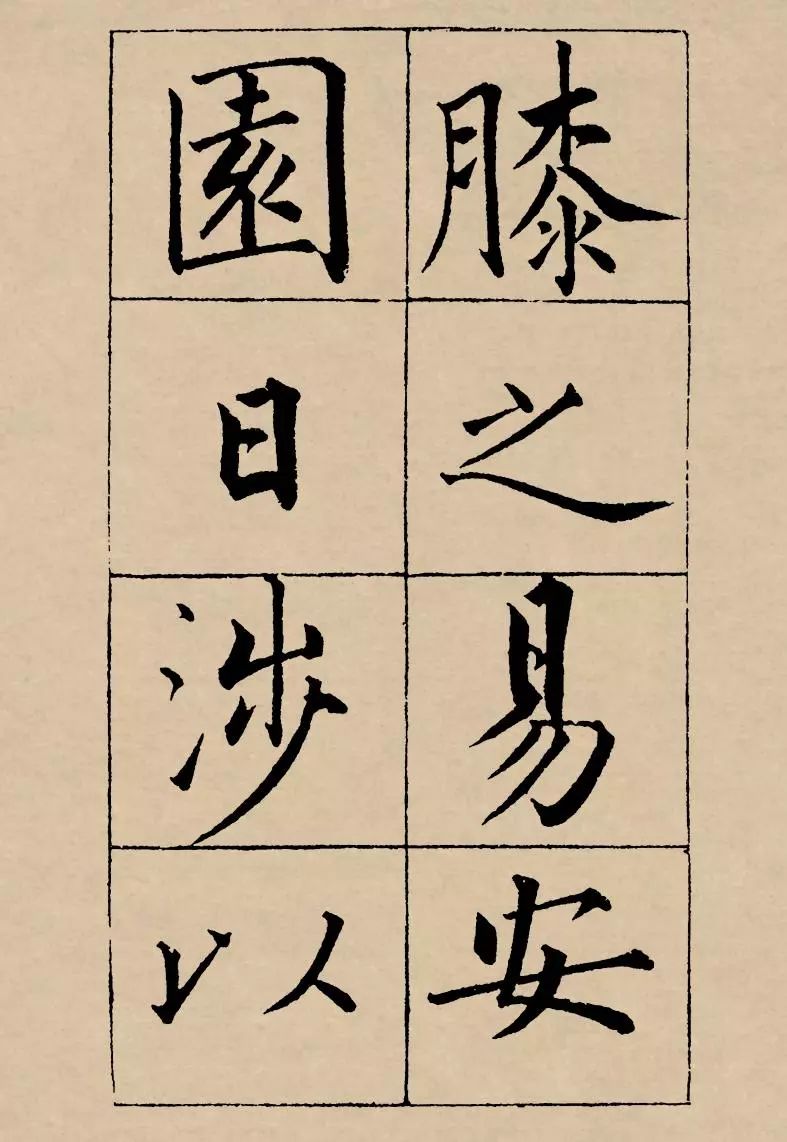 膝之易安
園日涉以